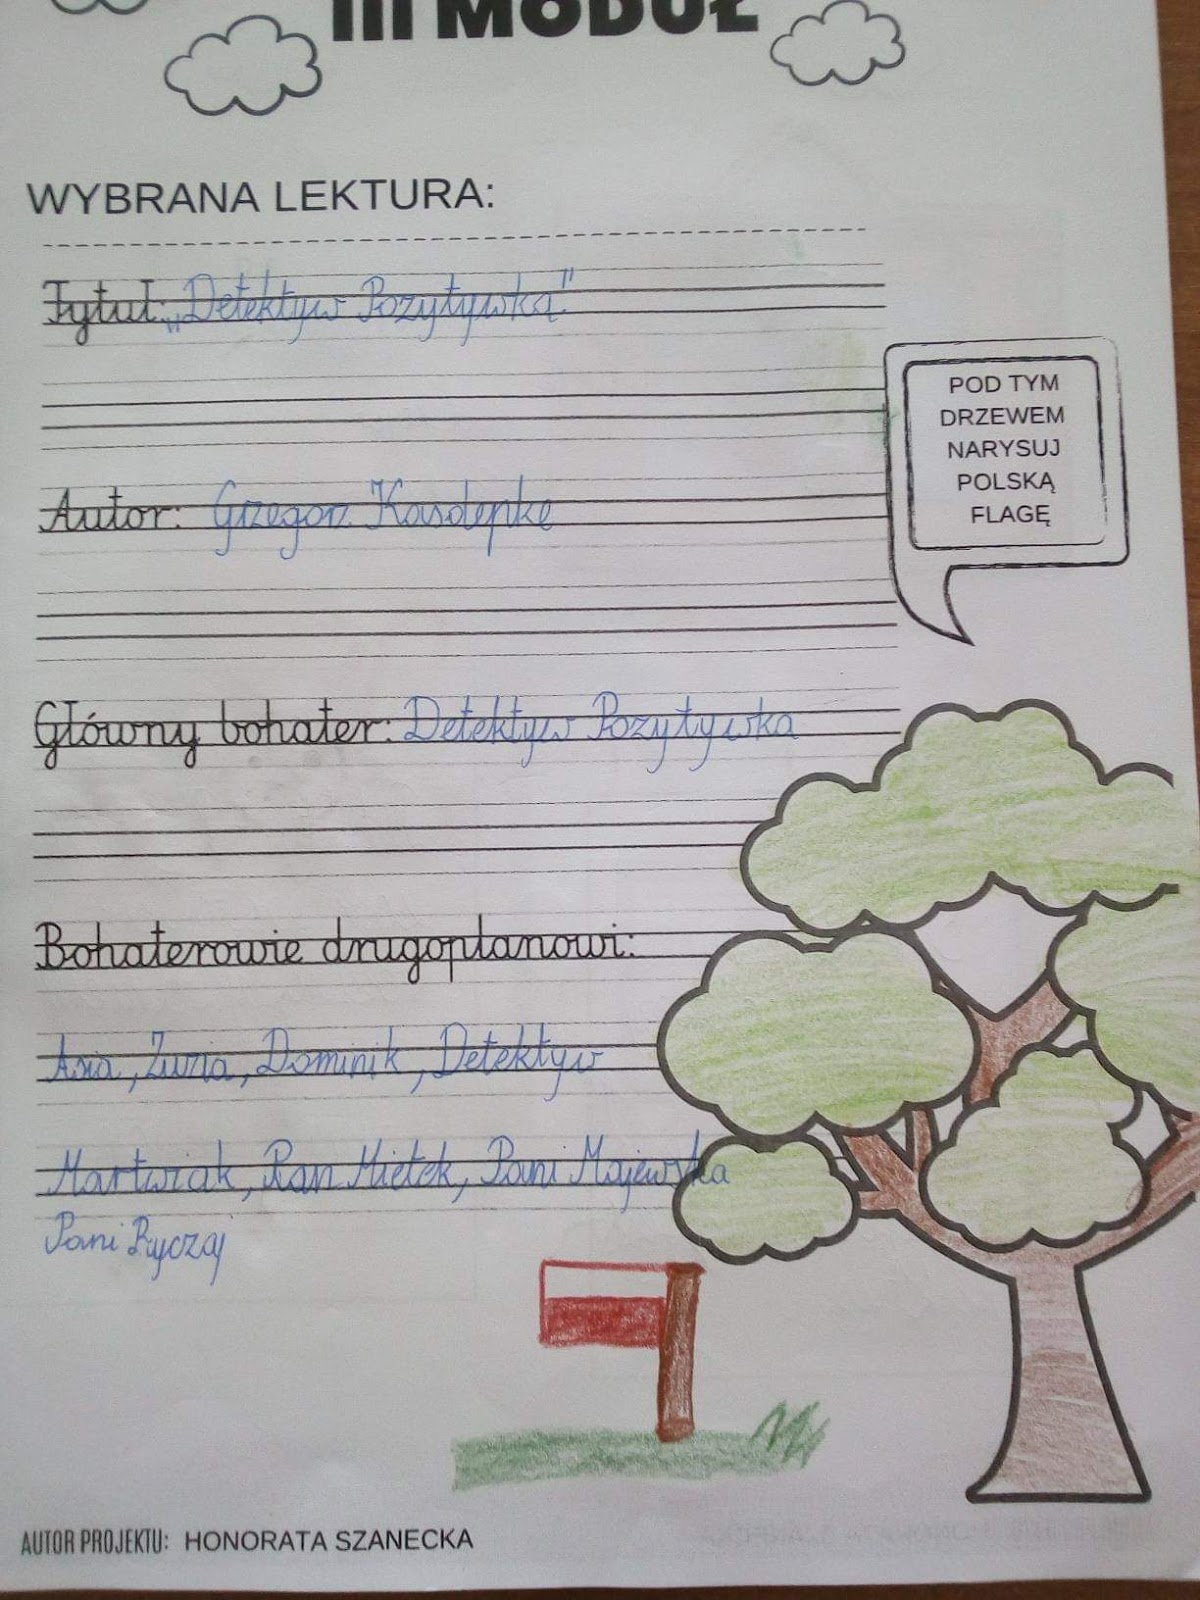 III MODUŁ
WYBRANA LEKTURA:
Tytuł: „Detektyw Pozytywka"
POD TYM
DRZEWEM
NARYSUJ
POLSKĄ
FLAGĘ
Autor: Grzegorz Kasdepke
Główny bohater: Detektyw Pozytywka
Bohaterowie drugoplanowi:
Asia, Zuzia, Dominik, Detektyw
Martwiak, Pan Mietek, Pani Majewska
Pani Ryczaj
AUTOR PROJEKTU: HONORATA SZANECKA